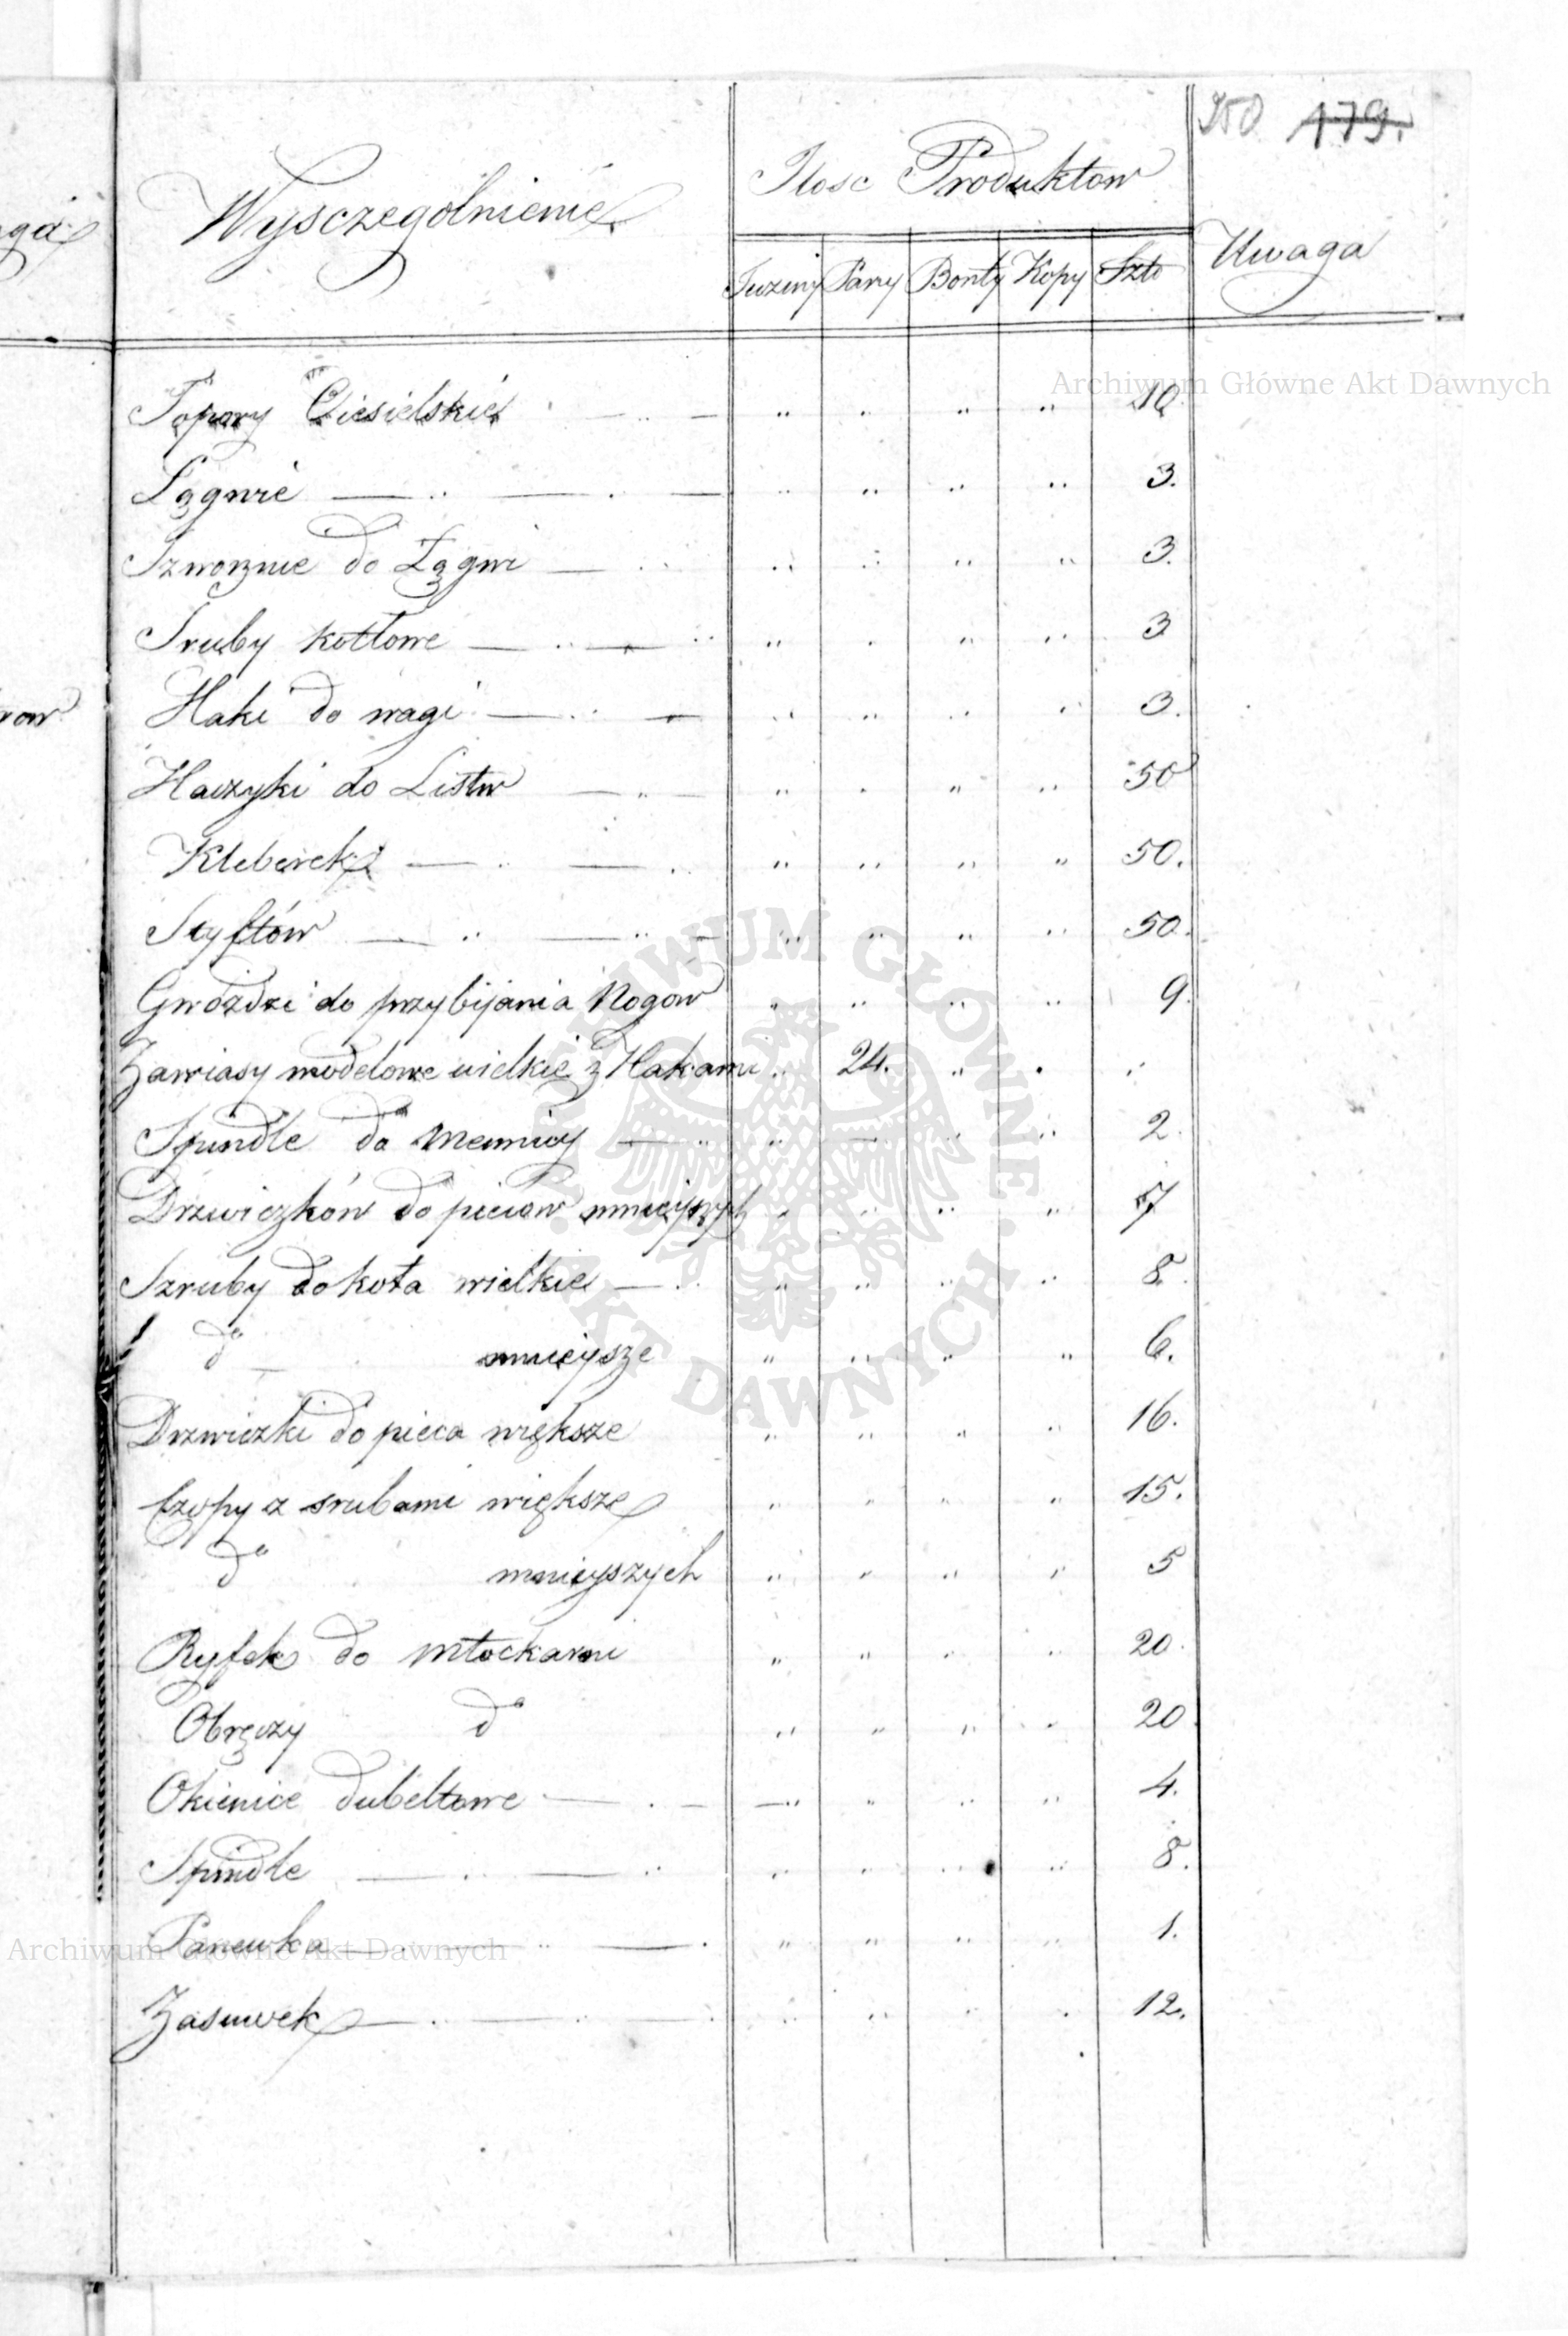 250 179.
Wysczegolnienie
Ilosc Produktow
Uwaga
Tuziny Pary Bonty Kopy Szto
Archiwum Główne Akt Dawnych
Topory Ciesielskie — " — " " " " 10
Lągwie — " — . — " " " " 3.
Szworznie do Lągwi — " " " " " 3.
Sruby kotłowe — " — " " " " " 3
Haki do wagi — " — " " " " 3.
Haczyki do Listw — " — " " " " 50
Kleberek — " — . " " " " 50.
Styftów — " — " — " " " " 50.
Gwoździ do przybijania Rogow " " " " 9.
Zawiasy modelowe wielkie z Hakami " 24. " " "
Spindle do Mennicy — " " — " " 2.
Drzwiczków do pieców mnieyszych " " " " 7
Szruby do koła wielkie — " " " " " 8.
do mnieysze " " " " 6.
Drzwiczki do pieca większe " " " " 16.
Czopy z srubami większe " " " " 15.
do mnieyszych " " " " 5
Ryfek do Młockarni " " " " 20.
Obręczy do " " " " 20
Okienice dubeltowe — . — — " " " " 4.
Spindle — . — " " " " " 8.
Panewka — " — . " " " " 1.
Archiwum Główne Akt Dawnych
Zasuwek — . — " — . " " " " 12.
ARCHIWUM GŁÓWNE AKT DAWNYCH